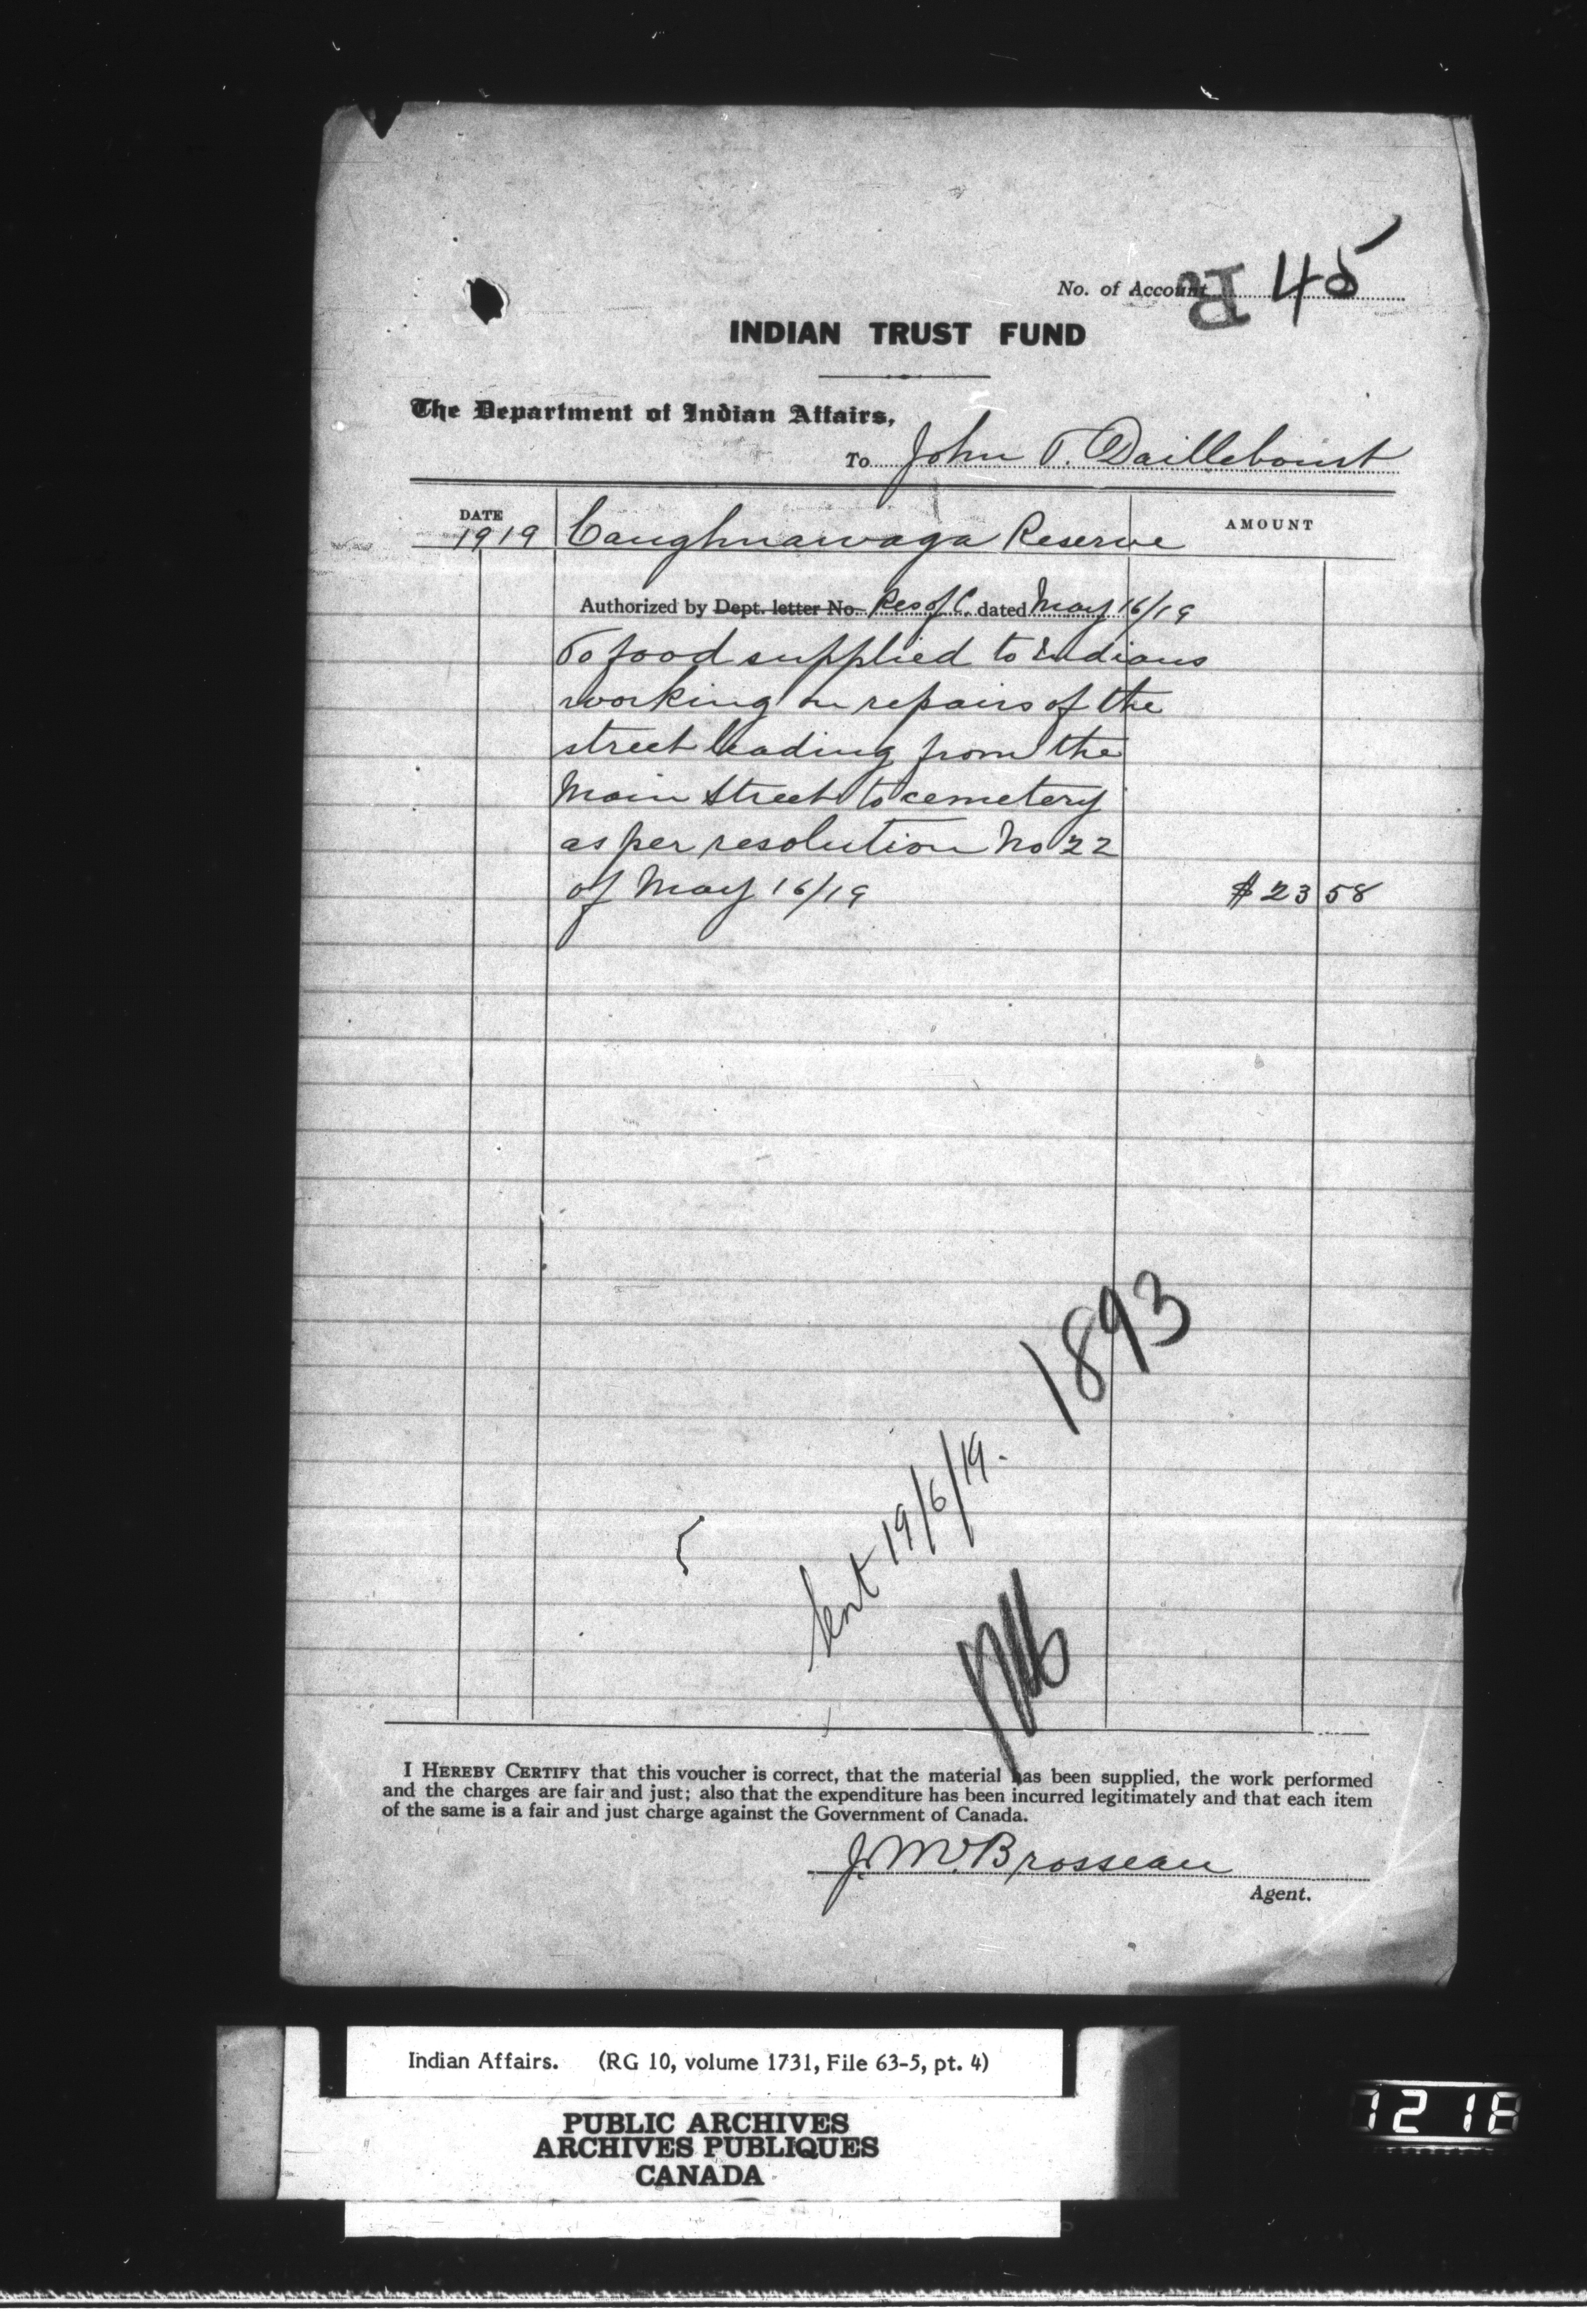 No. of Account R 45
INDIAN TRUST FUND
The Department of Indian Affairs,
To John T. Dailleboust
DATE
1919 Caughnawaga Reserve AMOUNT
Authorized by Dept. letter No. Res of C. dated May 16/19
To food supplied to Indians
working on repairs of the
street leading from the
Main Street to cemetery
as per resolution No 22
of May 16/19 $23 58
1893
Sent 19/6/19.
I HEREBY CERTIFY that this voucher is correct, that the material has been supplied, the work performed
and the charges are fair and just; also that the expenditure has been incurred legitimately and that each item
of the same is a fair and just charge against the Government of Canada.
J. M. Brosseau
Agent.
Indian Affairs. (RG 10, volume 1731, File 63-5, pt. 4)
PUBLIC ARCHIVES
ARCHIVES PUBLIQUES
CANADA
1218